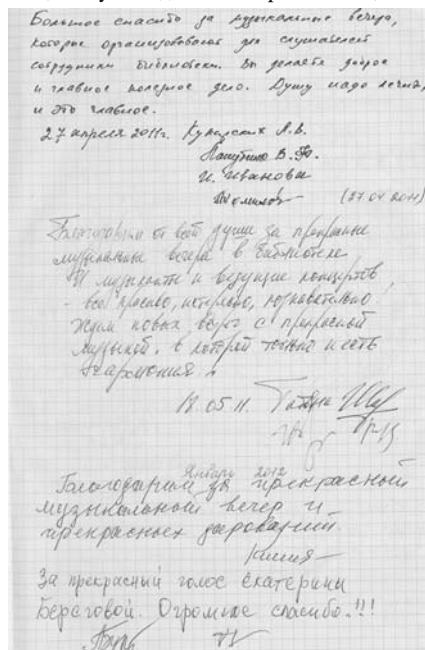 Большое спасибо за музыкальные вечера,
которые организовывают для слушателей
сотрудники библиотеки. Вы делаете доброе
и главное полезное дело. Душу надо лечить,
и это главное.
27 апреля 2011г. Л. В.
В. Ф.
И. Иванова
(27 04 2011)
Благодарим от всей души за прекрасные
музыкальные вечера в библиотеке
И музыканты и ведущие концертов,
- всё красиво, интересно, познавательно!
Ждем новых встреч с прекрасной
музыкой, в которой только и есть
гармония.
18.05 11.
Январь 2012
Благодарим за прекрасный
музыкальный вечер и
прекрасных дарований.
За прекрасный голос Екатерины
Береговой. Огромное спасибо.!!!